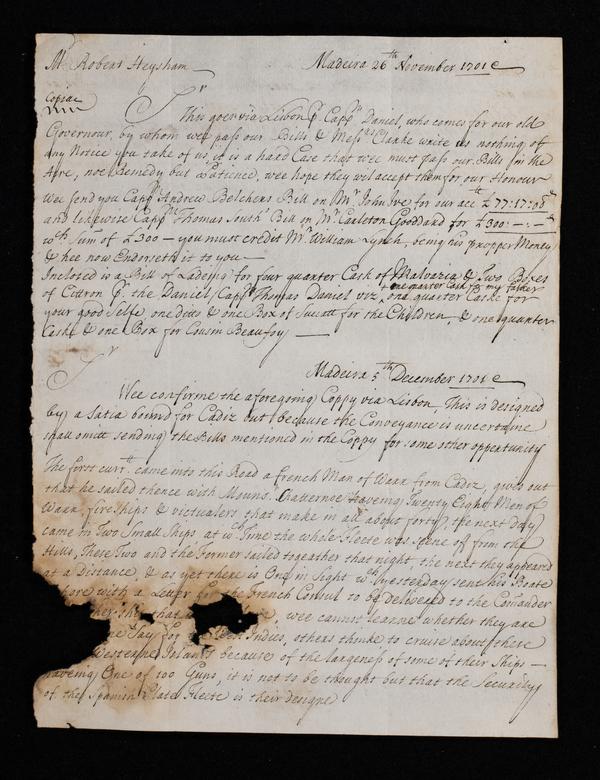 Mr Robert Heysham
Madeira 26th November 1701
Copiae
Sr
This goes via Lisbon p Cappn Daniel, who comes for our old
Governour, by whom wee pass our Bills & Messrs Clarke write us nothing of
any Notice you take of us, it is a hard Case that wee must pass our Bills in the
Aire, noe Remedy but Patience, wee hope they wil accept them for our Honour
Wee send you Cappn Andrew Belchers Bill on Mr John Ive for our acct £77:17:08
and likewise Cappn Thomas South Bill on Mr Carleton Goddard for £300:—:—
wch Sum of £300 — you must credit Mr William Lynch, being his propper Money
& hee now Endorseth it to you —
Inclosed is a Bill of Ladeing for four quarter Cask of Malvazia & Two Boxes
+ one quarter Cask for my father
of Cittron p. the Daniel, Cappn Thomas Daniel viz, one quarter Caske for
your good Selfe, one ditto & one Box of Suckatt for the Children, & one quarter
Caske & one Box for Cousin Beaufoy —
Sr
Madeira 5th December 1701
Wee confirme the aforegoing Coppy via Lisbon, This is designed
by a Satia bound for Cadiz but because the Conveyance is uncertaine
shall omitt sending the Bills mentioned in the Coppy for some other opportunity
The first currt came into this Road a french Man of Warr from Cadiz, gives out
that he sailed thence with Mouns. haveing Twenty Eight Men of
Warr, fireships & victualers that make in all about forty, the next day
came in Two Small Ships at wch Time the whole fleete was seene of from the
Hills, These Two and the former sailed togeather that night, the next they appeared
at a Distance, & as yet there is One in Sight wch yesterday sent his Boate
hore with a Letter for the french Consul to be delivered to the Comander
ther ship that, wee cannot learne whether they are
Say for Indies, others thinke to cruise about these
Westerne Islands because of the largeness of some of their Ships —
haveing One of 100 Guns, it is not to be thought but that the Security
of the Spanish Plate fleete is their designe